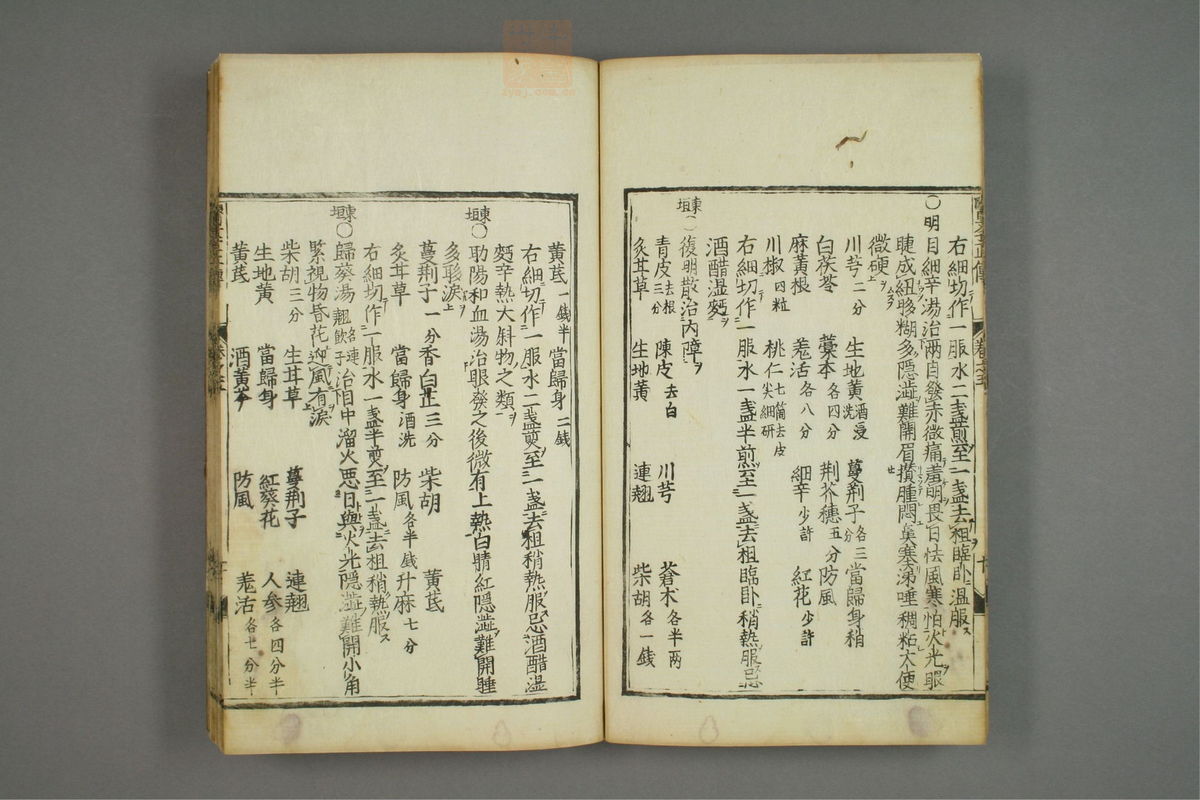 右細切作一服水二盞煎至一盞去柤臨臥温服
○明目細辛湯治兩目發赤微痛羞明畏日怯風寒怕火光眼
睫成紐眵糊多隱澁難開眉攅腫悶鼻塞涕唾稠粘大便
微硬
川芎二分 生地黄酒浸洗 蔓荆子各三分 當歸身稍
白茯苓 藁本各四分 荆芥穗五分 防風
麻黄根 羗活各八分 細辛少許 紅花少許
川椒四粒 桃仁七箇去皮尖細研
右細切作一服水一盞半煎至一盞去柤臨臥稍熱服忌
酒醋湿麪
東垣○復明散治内障
青皮去根三分 陳皮去白 川芎 蒼术各半兩
炙甘草 生地黄 連翹 柴胡各一錢
黄芪一錢半 當歸身二錢
右細切作一服水二盞煎至一盞去柤稍熱服忌酒醋湿
麪辛熱大料物之類
東垣○助陽和血湯治眼發之後微有上熱白睛紅隱澁難開睡
多眵淚
蔓荆子一分 香白芷三分 柴胡 黄芪
炙甘草 當歸身酒洗 防風各半錢 升麻七分
右細切作一服水一盞半煎至一盞去柤稍熱服
東垣○歸葵湯名連翹飲子治目中溜火惡日與火光隱澁難開小角
緊視物昏花迎風有淚
柴胡三分 生甘草 蔓荆子 連翹
生地黄 當歸身 紅葵花 人参各四分半
黄芪 酒黄芩 防風 羗活各七分半
zysj.com.cn